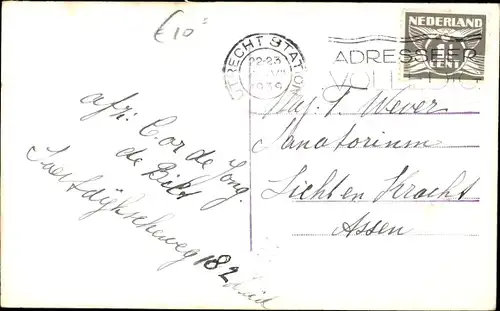 €10
UTRECHT STATION
22-23
1939
ADRESSEER
VOLLEDIG
NEDERLAND
Mej. T. Wever
Sanatorium
Licht en Kracht
Assen
afz: Cor de Jong.
de Bilt
Soestdijkscheweg 182 Zuid